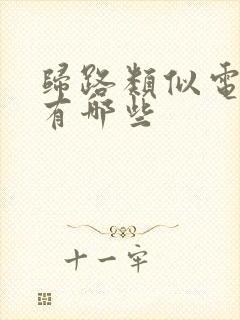 歸路類似電
有哪些
十一牢